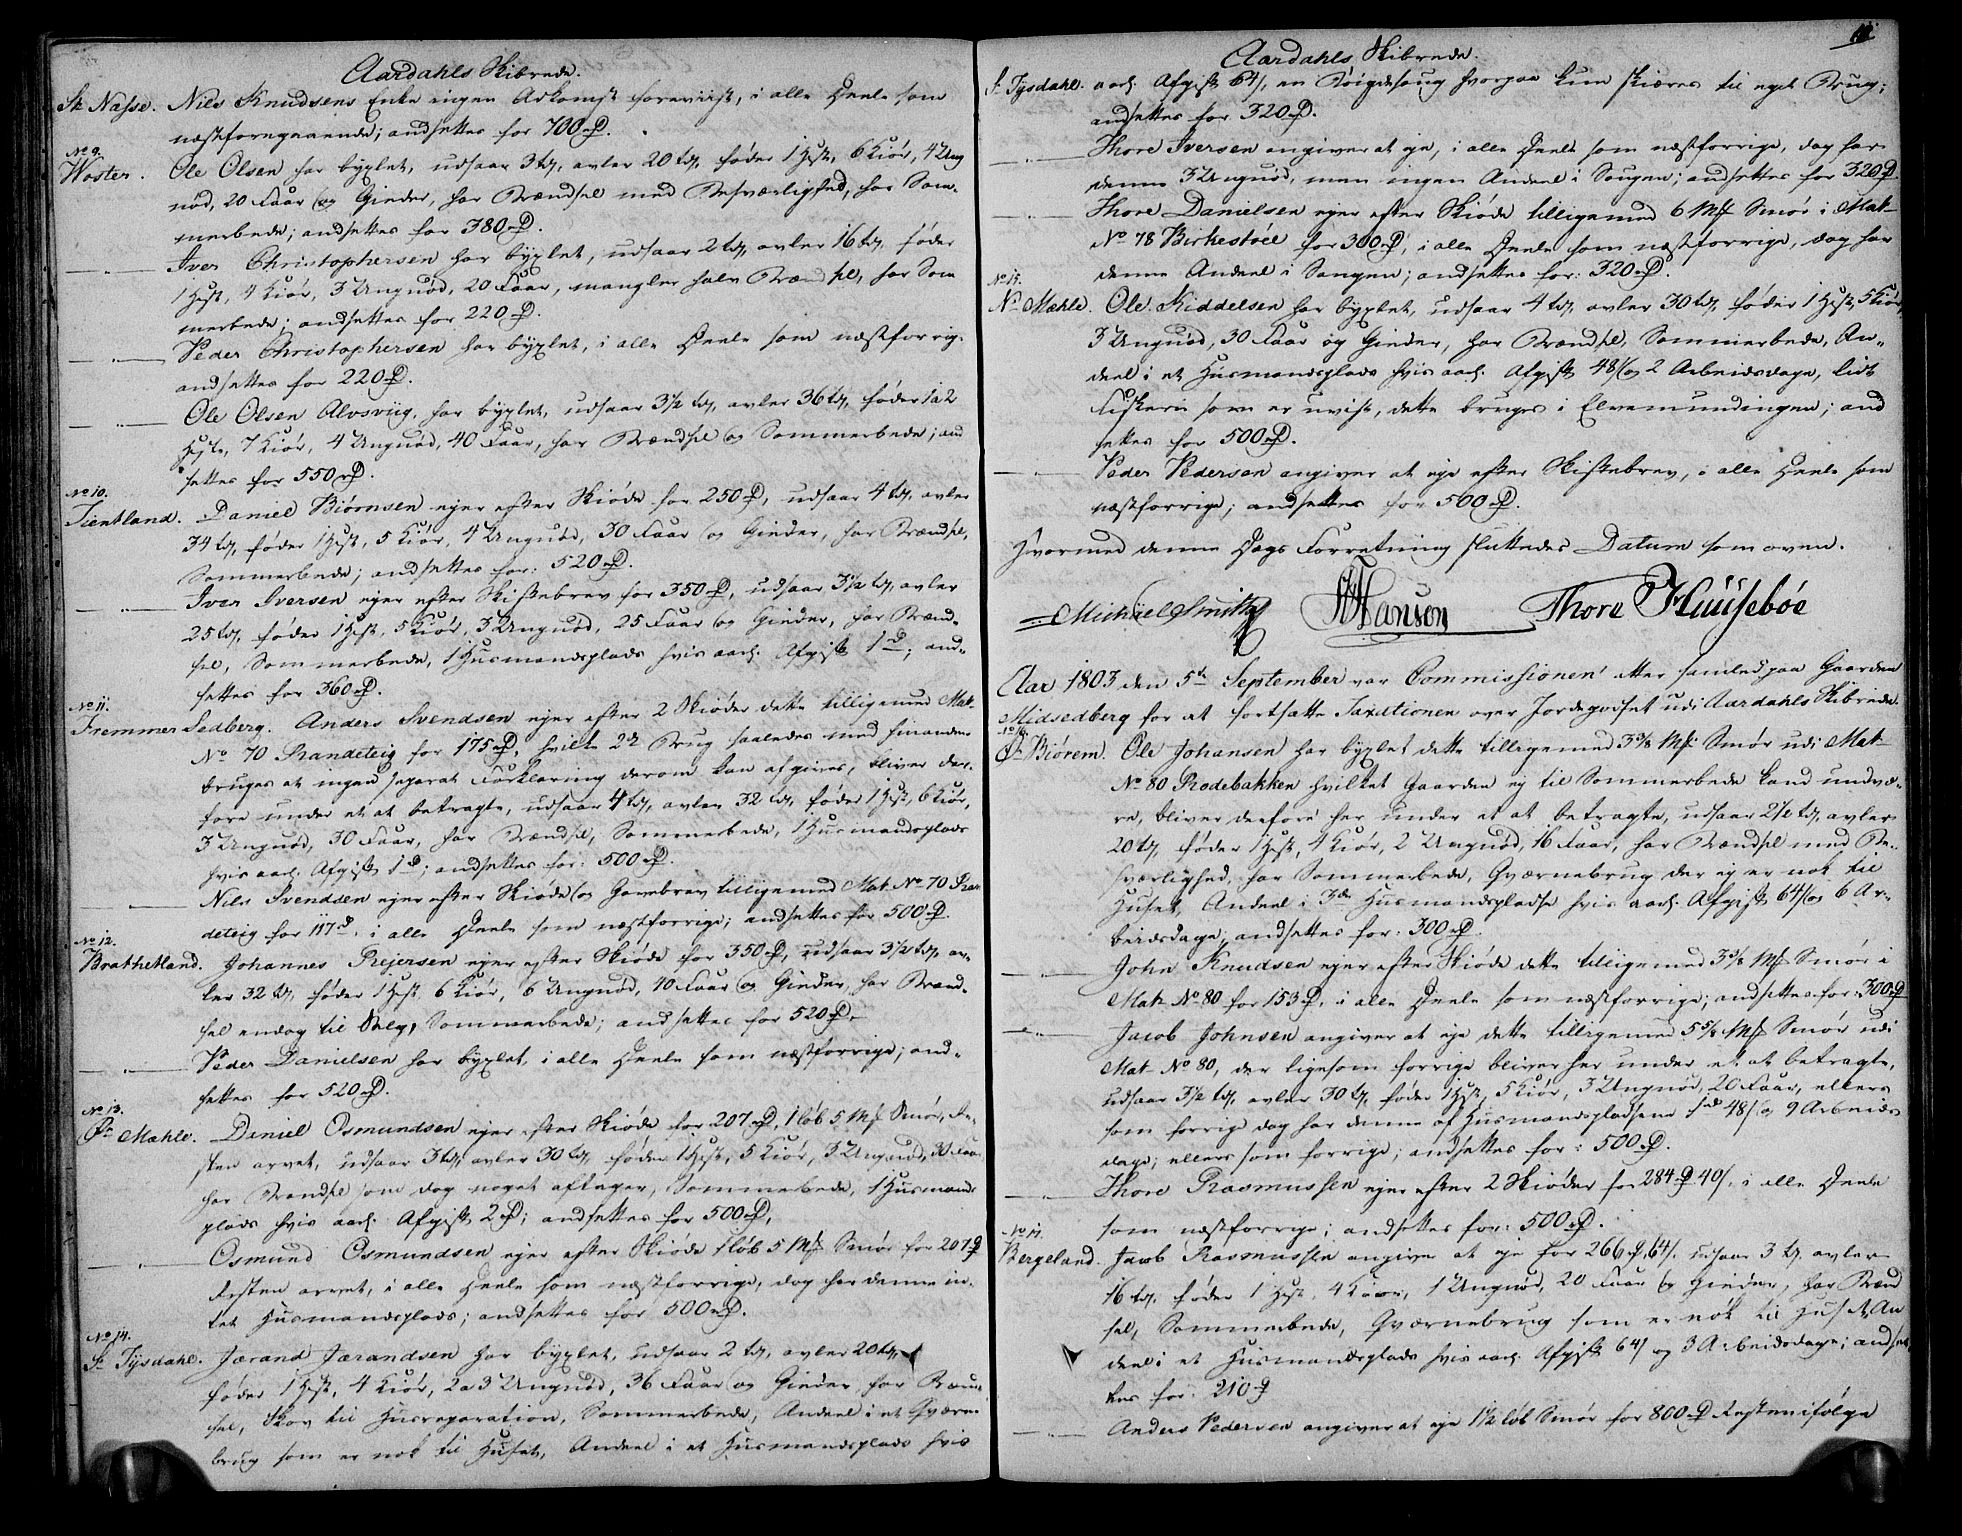 Aardahls Skibrede.
St. Næsse. Nils Knudsens Enke ingen Adkomst foreviist, i alle Deele som
næstforegaaende; andsettes for 700 rD.
No 9.
Woster. Ole Olsen har byxlet, udsaar 3 td, avler 20 td, føder 1 Hest, 6 Kiør, 4 Ung
nød, 20 Faar og Gieder, har Brændsel med Besværlighed, har Som-
merbede; andsettes for 380 rD.
Iver Christophersen har byxlet, udsaar 2 td, avler 16 td, føder
1 Hest, 4 Kiør, 3 Ungnød, 20 Faar, mangler halv Brændsel, har Som
merbede; andsettes for 220 rD.
Peder Christophersen har byxlet, i alle Deele som næstforrig.
andsettes for 220 rD.
Ole Olsen Alvsviig, har byxlet, udsaar 3½ td, avler 36 td, føder 1 a 2
Heste, 7 Kiør, 4 Ungnød, 40 Faar, har Brændsel og Sommerbede; and
settes for 550 rD.
No 10.
Tientland. Daniel Biørnsen ejer efter Skiøde for 250 rD, udsaar 4 td, avler
34 td, føder 1 Hest, 5 Kiør, 4 Ungnød, 30 Faar og Gieder, har Brændsel,
Sommerbede; andsettes for: 520 rD.
Iver Iversen ejer efter Skiftebrev for 350 rD, udsaar 3½ td, avler
25 td, føder 1 Hest, 5 Kiør, 3 Ungnød, 25 Faar og Gieder, har Brænd-
sel, Sommerbede, 1 Husmandsplads hvis aarl. Afgift 1 rD; and-
settes for 360 rD.
No 11.
Fremmer Sedberg. Anders Svendsen ejer efter 2 Skiøder dette tilligemed Mat-
No 70 Randeteig for 175 rD, hvilke 2de Brug saaledes med hinanden
bruges at ingen separat Forklaring derom kan afgives, bliver der-
fore under et at betragte, udsaar 4 td, avler 32 td, føder 1 Hest, 6 Kiør,
3 Ungnød, 30 Faar, har Brændsel, Sommerbede, 1 Husmandsplads
hvis aarl. Afgift 1 rD; andsettes for: 500 rD.
Nils Svendsen ejer efter Skiøde og Gavebrev tilligemed Mat. No 70 Ran
deteig for 117 rD, i alle Deele som næstforrige; andsettes for 500 rD.
No 12.
Brathetland. Johannes Rejersen ejer efter Skiøde for 350 rD, udsaar 3½ td, av-
ler 32 td, føder 1 Hest, 6 Kiør, 6 Ungnød, 40 Faar og Gieder, har Brænd-
sel endog til Salg, Sommerbede; andsettes for 520 rD.
Peder Danielsen har byxlet, i alle Deele som næstforrige; and-
settes for 520 rD.
No 13.
Ø. Mæhle. Daniel Osmundsen ejer efter Skiøde for 207 rD, 1 løb 5 Mk Smør, Re-
sten arvet, udsaar 3 td, avler 30 td, føder 1 Hest, 5 Kiør, 3 Ungnød, 30 Faar
har Brændsel som dog noget aftager, Sommerbede, 1 Husmands
plads hvis aarl. Afgift 2 rD; andsettes for 500 rD,
Osmund Osmundsen ejer efter Skiøde 1 løb 5 Mk Smør for 207 rD
Resten arvet, i alle Deele som næstforrige, dog har denne in-
tet Husmandsplads; andsettes for 500 rD.
No 14.
St. Tysdahl. Jærand Jærandsen har byxlet, udsaar 2 td, avler 20 td,
føder 1 Hest, 4 Kiør, 2 a 3 Ungnød, 36 Faar og Gieder, har Brænd-
sel, Skov til Husreparation, Sommerbede, Andeel i et Qværne-
brug som er nok til Huset, Andeel i et Husmandsplads hvis
Aardahls Skibrede.
St. Tysdahl. aarl. Afgift 64 s, en Bøigdesaug hvorpaa kun skiæres til eget Brug;
andsettes for 320 rD.
Thore Iversen angiver at eje, i alle Deele som næstforrige, dog har
denne 3 Ungnød, men ingen Andeel i Saugen; andsettes for 320 rD.
Thore Danielsen ejer efter Skiøde tilligemed 6 Mk Smør i Mat-
No 78 Birkestøel for 300 rD, i alle Deele som næstforrige, dog har
denne Andeel i Saugen; andsettes for: 320 rD.
No 15.
N. Mæhle. Ole Kiddelsen har byxlet, udsaar 4 td, avler 30 td, føder 1 Hest, 5 Kiør,
3 Ungnød, 30 Faar og Gieder, har Brændsel, Sommerbede, An-
deel i et Husmandsplads hvis aarl. Afgift 48 s og 2 Arbeidsdage, lidt
Fiskerie som er uvist, dette bruges i Elvemundingen; and
settes for 500 rD.
Peder Pedersen angiver at eje efter Skiftebrev, i alle Deele som
næstforrige; andsettes for 500 rD.
Hvormed denne Dags Forretning sluttedes Datum som oven.
Michael Smith HHanson Thore Huusebøe
Aar 1803 den 5te September var Commissionen etter samled paa Gaarden
Midsedberg for at fortsætte Taxationen over Jordegodset udi Aardahls Skibrede.
No 16.
Ø. Biørem. Ole Johansen har byxlet dette tilligemed 3 3/8 Mk Smør udi Mat-
No 80 Rodebakken hvilket Gaarden ej til Sommerbede kand undvæ-
re, bliver derfore her under et at betragte, udsaar 2½ td, avler
20 td, føder 1 Hest, 4 Kiør, 2 Ungnød, 16 Faar, har Brændsel med Be-
sværlighed, har Sommerbede, Qværnebrug der ej er nok til
Huset, Andeel i 3de Husmandspladse hvis aarl. Afgift 64 s og 6 Ar-
beidsdage; andsettes for: 300 rD.
John Knudsen ejer efter Skiøde dette tilligemed 3 3/8 Mk Smør i
Mat. No 80 for 153 rD, i alle Deele som næstforrige; andsettes for: 300 rD
Jacob Johnsen angiver at eje dette tilligemed 5 5/8 Mk Smør udi
Mat- No 80, der ligesom forrige bliver her under et at betragte,
udsaar 3½ td, avler 30 td, føder 1 Hest, 5 Kiør, 3 Ungnød, 20 Faar, ellers
som forrige dog har denne af Husmandspladsene 1 rD 48 s og 9 Arbeids
dage; ellers som forrige; andsettes for: 500 rD.
Thore Rasmussen ejer efter 2 Skiøder for 284 rD 40 s, i alle Deele
som næstforrige; andsettes for: 500 rD.
No 17.
Bergeland. Jacob Rasmussen angiver at eje for 266 rD, 64 s, udsaar 3 td, avler
16 td, føder 1 Hest, 4 Kiør, 1 Ungnød, 20 Faar og Gieder, har Brænd
sel, Sommerbede, Qværnebrug som er nok til Huset, An
deel i et Husmandsplads hvis aarl. Afgift 64 s og 3 Arbeidsdage; andset
tes for: 210 rD
Anders Pedersen angiver at eje 1½ løb Smør for 800 rD Resten ifølge